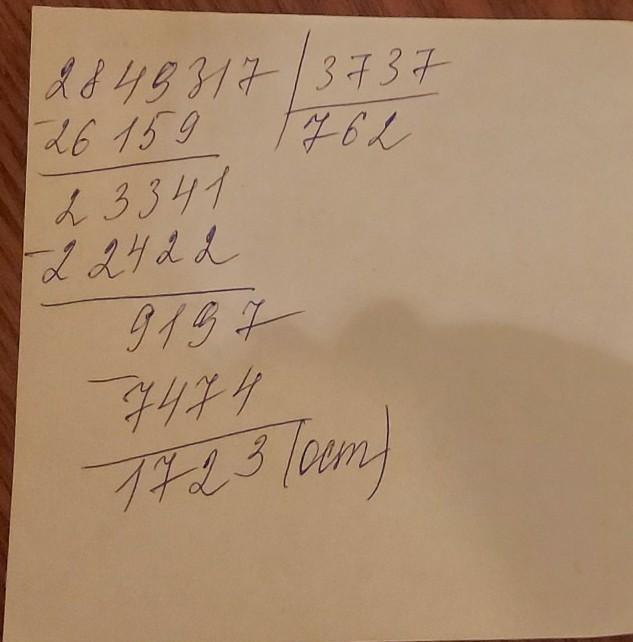 2849317 | 3737
-26159 762
23341
-22422
9197
-7474
1723 (ост)